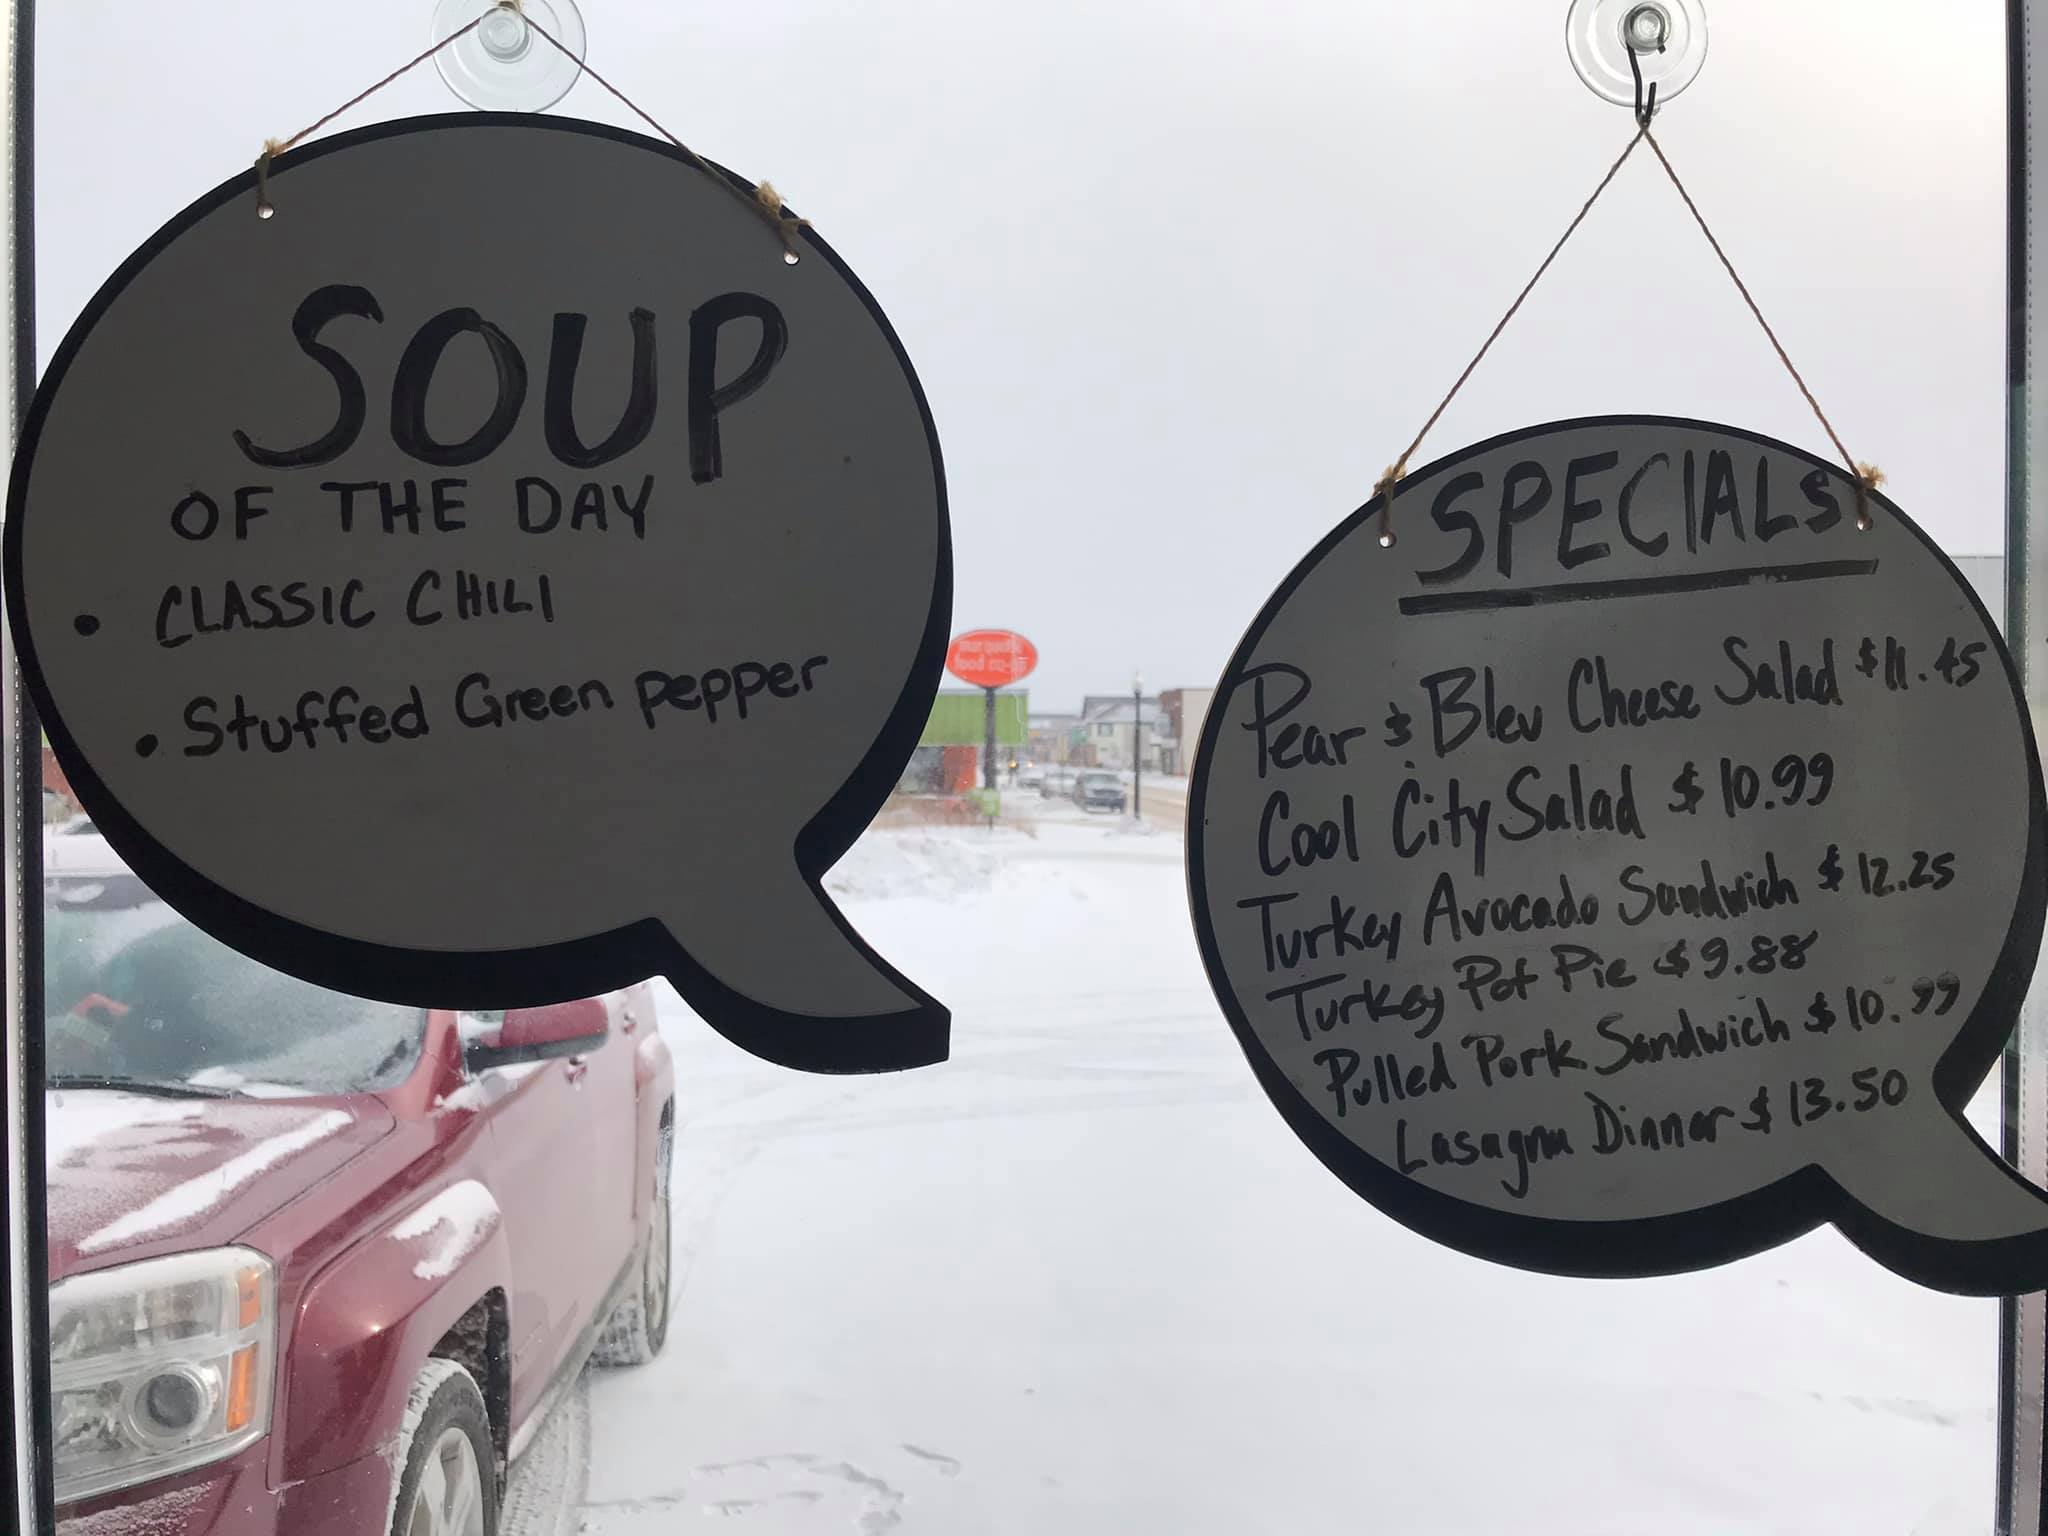 SOUP
OF THE DAY
• CLASSIC CHILI
• Stuffed Green pepper
SPECIALS
Pear & Bleu Cheese Salad $11.45
Cool City Salad $10.99
Turkey Avocado Sandwich $12.25
Turkey Pot Pie $9.88
Pulled Pork Sandwich $10.99
Lasagna Dinner $13.50